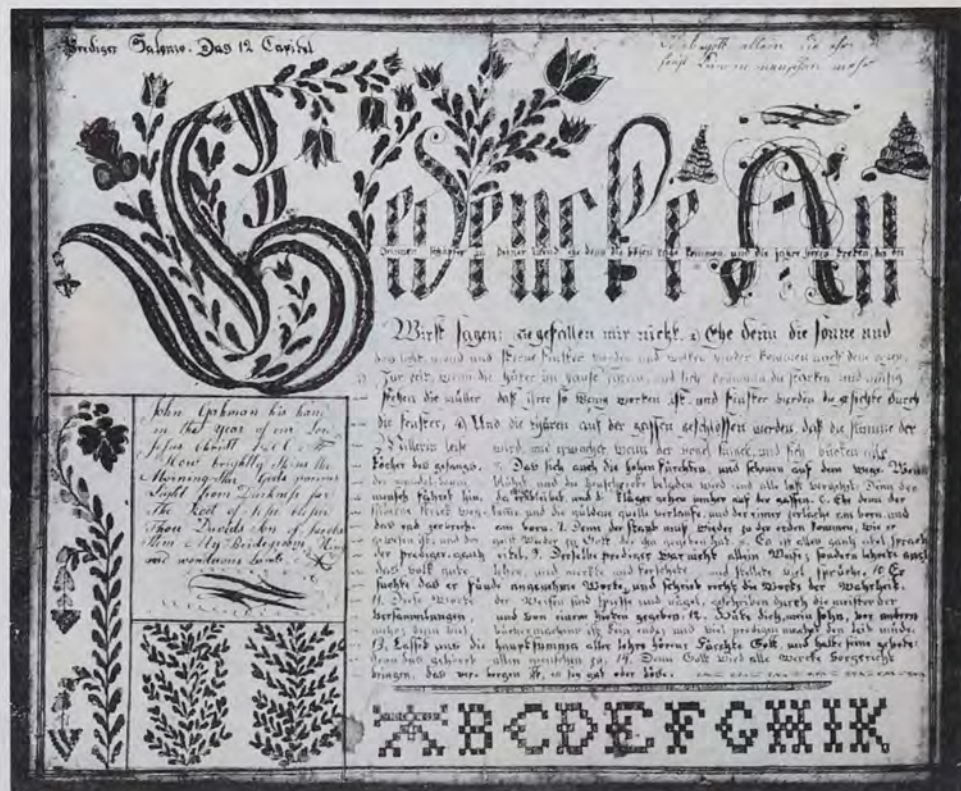 Prediger Salomo. Das 12 Capitel
Gott allein die ehr
Gedencke An
deinen schöpfer in deiner Jugend ehe denn die bösen tage kommen, und die jahre herzu tretten, da du
Wirst sagen; sie gefallen mir nicht. 2) Ehe denn die sonne und
das licht, mond und sterne finster werden und wolken wieder kommen nach dem regen.
3) Zur zeit, wenn die hüter im hause zittern, und sich krümmen die starcken und müssig
stehen die müller daß ihrer so wenig worden ist, und finster werden die gesichte durch
die fenster, 4) Und die thüren auf der gassen geschlossen werden, daß die stimme der
Müllerin leise wird, und erwachet, wenn der vogel singet, und sich bücken alle
töchter des gesangs. 5. Das sich auch die hohen fürchten, und scheuen auf dem wege. Wenn
der mandel-baum blühet, und die heuschrecke beladen wird und alle lust vergehet: Denn der
mensch fähret hin, da er bleibet, und die kläger gehen umher auf der gassen. 6. Ehe denn der
silberne strick weg-komme und die güldene quelle verlaufe, und der eimer zerleche am born, und
das rad zerbreche am born. 7. Denn der staub muß wieder zu der erden kommen, wie er
gewesen ist; und der geist wieder zu Gott der ihn gegeben hat. 8. Es ist alles gantz eitel sprach
der prediger, gantz eitel. 9. Derselbe prediger war nicht allein Weise; sondern lehrete auch
das volk gute lehre, und merkte und forschete und stellete viel sprüche. 10 Er
suchte das er fünde angenehme Worte, und schrieb recht die Worte der Wahrheit.
11. Diese Worte der Weisen sind spiesse und nägel; geschrieben durch die meister der
versammlungen, und von einem hirten gegeben. 12. Hüte dich, mein sohn, vor andern
mehr; denn viel büchermachens ist kein ende; und viel predigen machet den leib müde.
13. Lasset uns die hauptsumma aller lehre hören: Fürchte Gott, und halte seine gebote:
denn das gehöret allen menschen zu. 14. Denn Gott wird alle wercke vor gericht
bringen, das verborgen ist, es sey gut oder böse.
John his hand
in the year of our Lord
Jesus Christ
How brightly Shines the
Morning Star Gods gracious
Light from Darkness far
The Root of Jesse
Thou Davids Son of Jacobs
Stem My Bridegroom King
and wonderous
ABCDEFGHIK